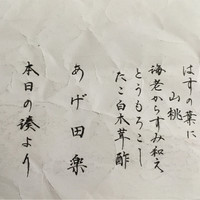 はすの葉に
山桃
海老からすみ和え
とうもろこし
たこ白木茸酢
あげ田楽
本日の湊より